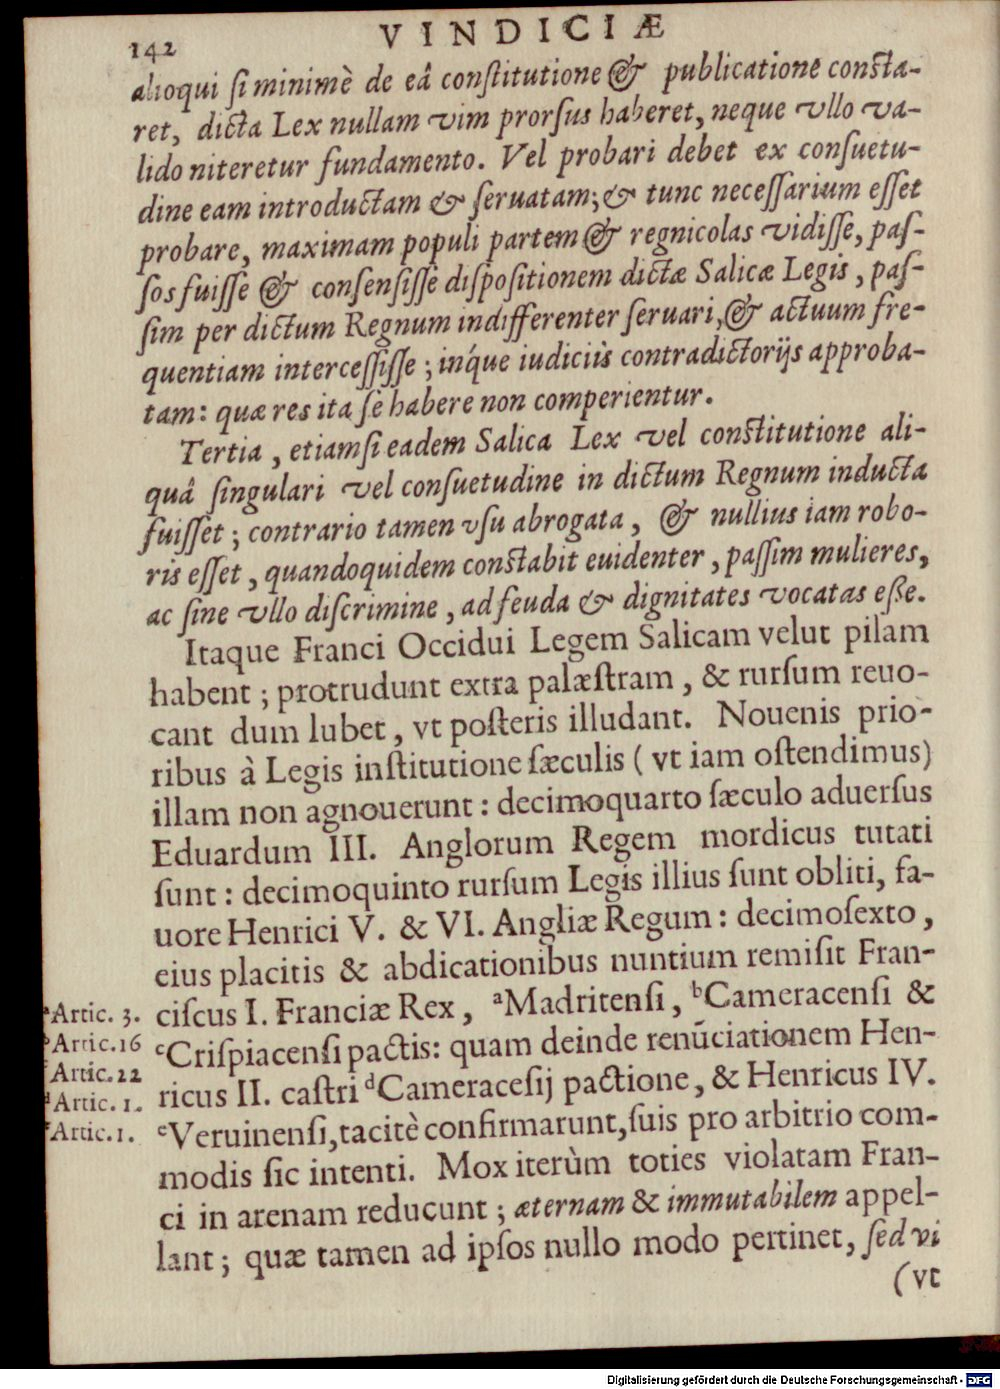 142
VINDICIÆ
alioqui ſi minimè de eâ conſtitutione & publicatione conſta-
ret, dicta Lex nullam vim prorſus haberet, neque vllo va-
lido niteretur fundamento. Vel probari debet ex conſuetu-
dine eam introductam & ſeruatam; & tunc neceſſarium eſſet
probare, maximam populi partem & regnicolas vidiſſe, paſ-
ſos fuiſſe & conſenſiſſe diſpoſitionem dictæ Salicæ Legis, paſ-
ſim per dictum Regnum indifferenter ſeruari, & actuum fre-
quentiam interceſſiſſe; inq́ue iudiciis contradictorijs approba-
tam: quæ res ita ſe habere non comperientur.
Tertia, etiamſi eadem Salica Lex vel conſtitutione ali-
quâ ſingulari vel conſuetudine in dictum Regnum inducta
fuiſſet; contrario tamen vſu abrogata, & nullius iam robo-
ris eſſet, quandoquidem conſtabit euidenter, paſſim mulieres,
ac ſine vllo diſcrimine, ad feuda & dignitates vocatas eße.
Itaque Franci Occidui Legem Salicam velut pilam
habent; protrudunt extra palæſtram, & rurſum reuo-
cant dum lubet, vt poſteris illudant. Nouenis prio-
ribus à Legis inſtitutione ſæculis (vt iam oſtendimus)
illam non agnouerunt: decimoquarto ſæculo aduerſus
Eduardum III. Anglorum Regem mordicus tutati
ſunt: decimoquinto rurſum Legis illius ſunt obliti, fa-
uore Henrici V. & VI. Angliæ Regum: decimoſexto,
eius placitis & abdicationibus nuntium remiſit Fran-
ciſcus I. Franciæ Rex, ᵃMadritenſi, ᵇCameracenſi &
ᶜCriſpiacenſi pactis: quam deinde renūciationem Hen-
ricus II. caſtri ᵈCameraceſij pactione, & Henricus IV.
ᵉVeruinenſi, tacitè confirmarunt, ſuis pro arbitrio com-
modis ſic intenti. Mox iterùm toties violatam Fran-
ci in arenam reducunt; æternam & immutabilem appel-
lant; quæ tamen ad ipſos nullo modo pertinet, ſed vi
(vt
ᵃArtic. 3.
ᵇArtic. 16
ᶜArtic. 22
ᵈArtic. 1.
ᵉArtic. 1.
Digitalisierung gefördert durch die Deutsche Forschungsgemeinschaft - DFG